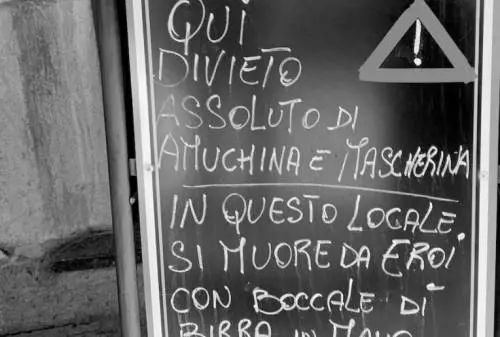 QUI
!
DIVIETO
ASSOLUTO DI
AMUCHINA E MASCHERINA
IN QUESTO LOCALE
SI MUORE DA EROI
CON BOCCALE DI
BIRRA IN MANO